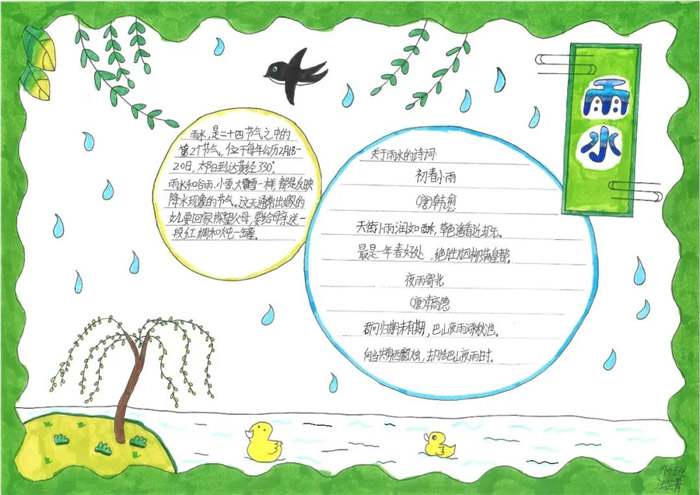 雨水
雨水,是二十四节气之中的
第2个节气。位于每年公历2月18-
20日,太阳到达黄经330°。
雨水和谷雨、小雪、大雪一样,都是反映
降水现象的节气。这天通常出嫁的
女儿要回家探望父母,要给母亲送一
段红绸和炖一罐
关于雨水的诗词
初春小雨
(唐)韩愈
天街小雨润如酥,草色遥看近却无。
最是一年春好处,绝胜烟柳满皇都。
夜雨寄北
(唐)
君问归期未有期,巴山夜雨涨秋池。
何当共剪西窗烛,却话巴山夜雨时。